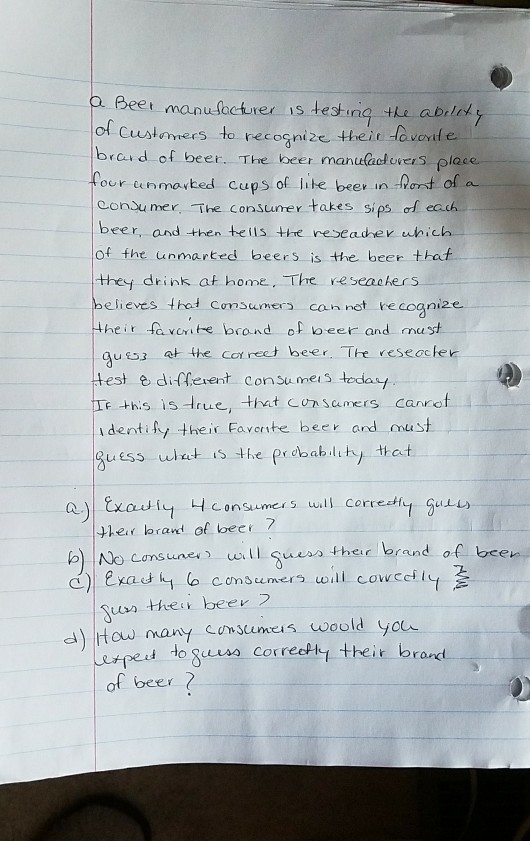 a Beer manufacturer is testing the ability
of customers to recognize their favorite
brand of beer. The beer manufacturers place
four unmarked cups of lite beer in front of a
consumer. The consumer takes sips of each
beer, and then tells the reseacher which
of the unmarked beers is the beer that
they drink at home. The reseachers
believes that consumers can not recognize
their favorite brand of beer and must
guess at the correct beer. The reseacher
test 8 different consumers today.
If this is true, that consumers cannot
identify their Favorite beer and must
guess what is the probability that
a.) Exactly 4 consumers will correctly guess
their brand of beer?
b) No consumers will guess their brand of beer
c) Exactly 6 consumers will correctly
guss their beer?
d) How many consumers would you
expect to guess correctly their brand
of beer?